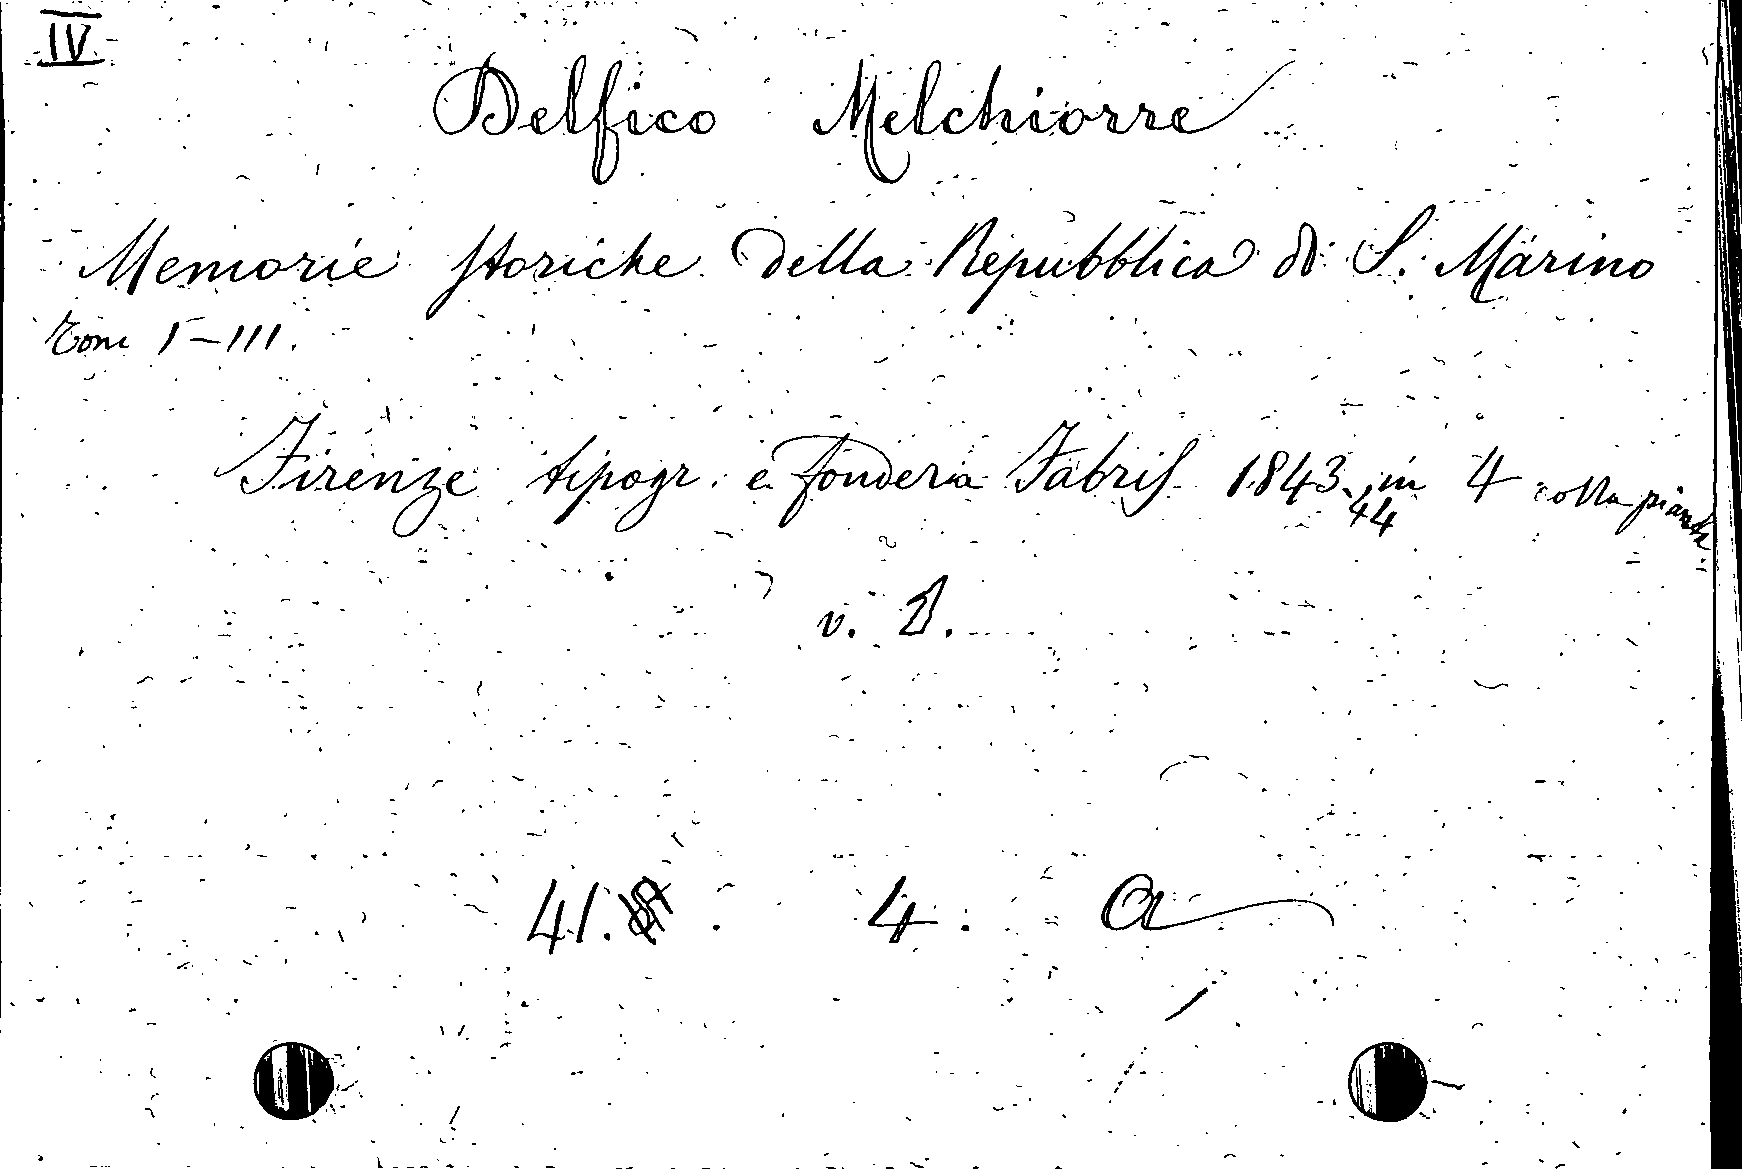 IV
Delfico Melchiorre
Memorie storiche della Repubblica di S. Marino
Tom I-III.
Firenze tipogr. e fonderia Fabris 1843-44 in 4 colla pianta
v. 1.
41. 4. a